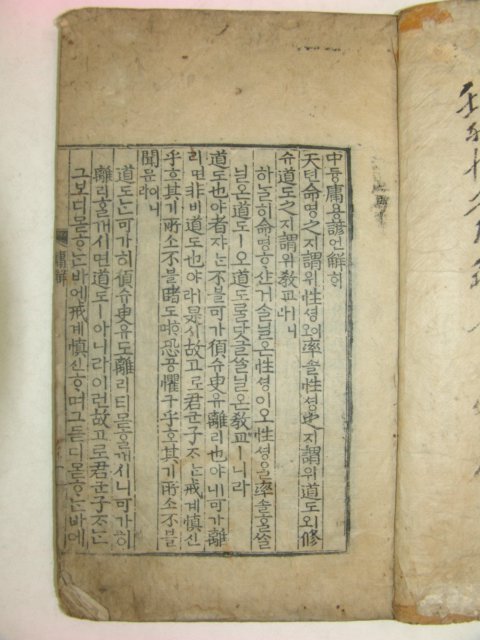 中듕庸용諺언解ᄒᆡ
天텬命명之지謂위性셩이오率솔性셩之지謂위道도ㅣ오修
슈道도之지謂위敎교ㅣ니라
하ᄂᆞᆯ히命명ᄒᆞ샨거슬닐온性셩이오性셩을率솔ᄒᆞᆯᄊᆞᆯ
닐온道도ㅣ오道도ᄅᆞᆯ닷글ᄊᆞᆯ닐온敎교ㅣ니라
道도也야者쟈ᄂᆞᆫ不불可가須슈臾유離리也야ㅣ니可가離
리면非비道도也야ㅣ라是시故고로君군子ᄌᆞᄂᆞᆫ戒계愼신
乎호其기所소不불睹도ᄒᆞ며恐공懼구乎호其기所소不불
聞문이니라
道도ᄂᆞᆫ可가히須슈臾유도離리티몯ᄒᆞᆯ거시니可가히
離리ᄒᆞᆯ거시면道도ㅣ아니라이런故고로君군子ᄌᆞᄂᆞᆫ
그보디몯ᄒᆞᄂᆞᆫ바에戒계愼신ᄒᆞ며그듣디몯ᄒᆞᄂᆞᆫ바에
庸解